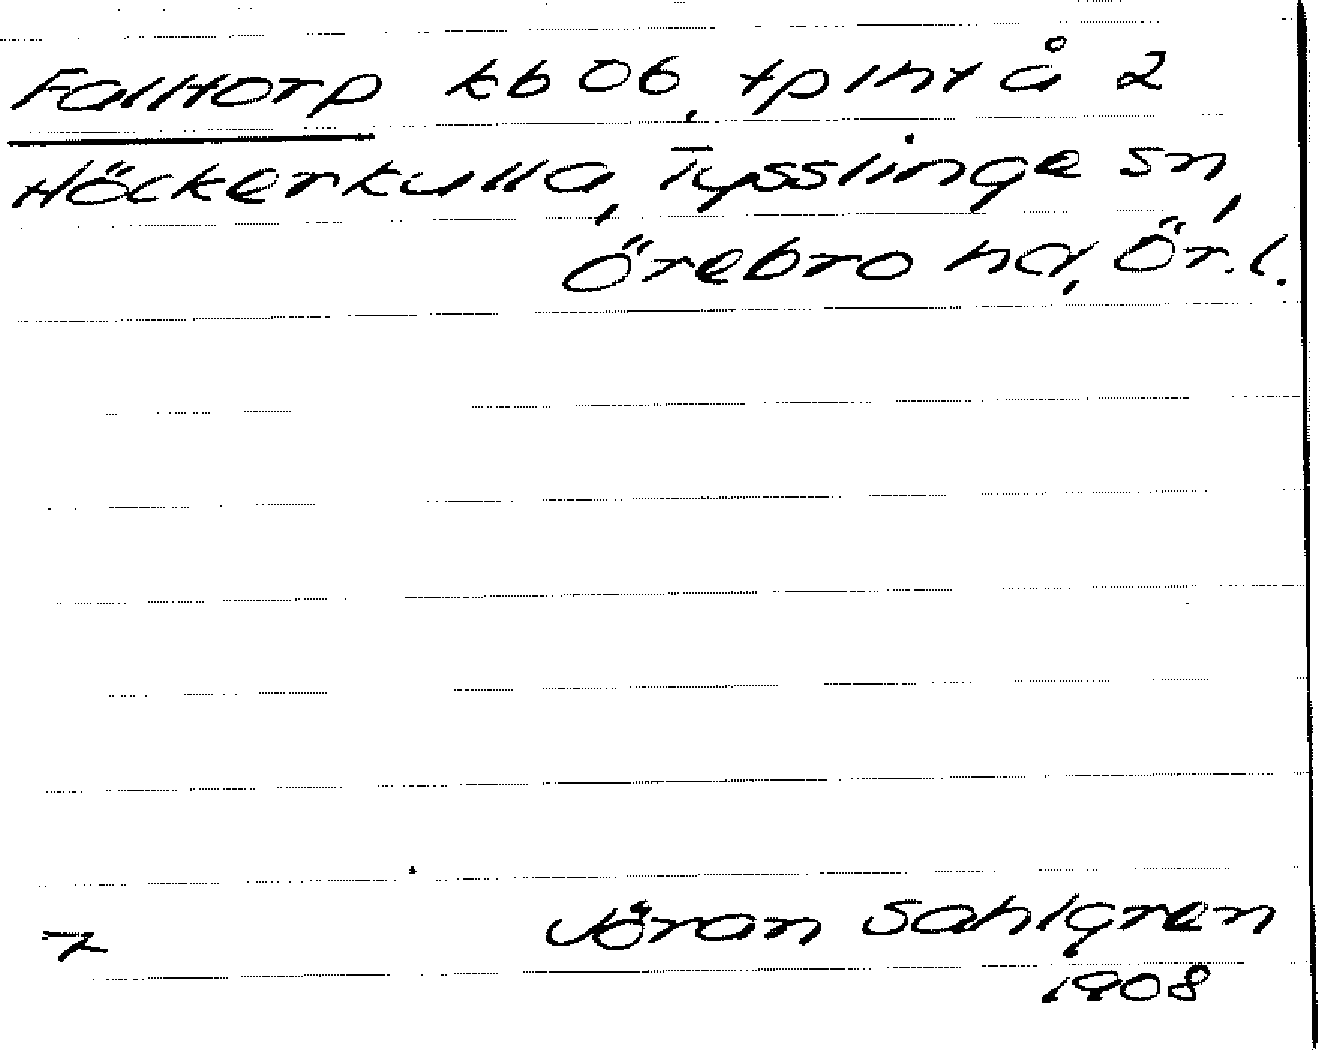 Falltorp kb 06, tp lht å 2
Höckerkulla, Tysslinge sn,
Örebro hd, Ör. l.
Jöran Sahlgren
1908